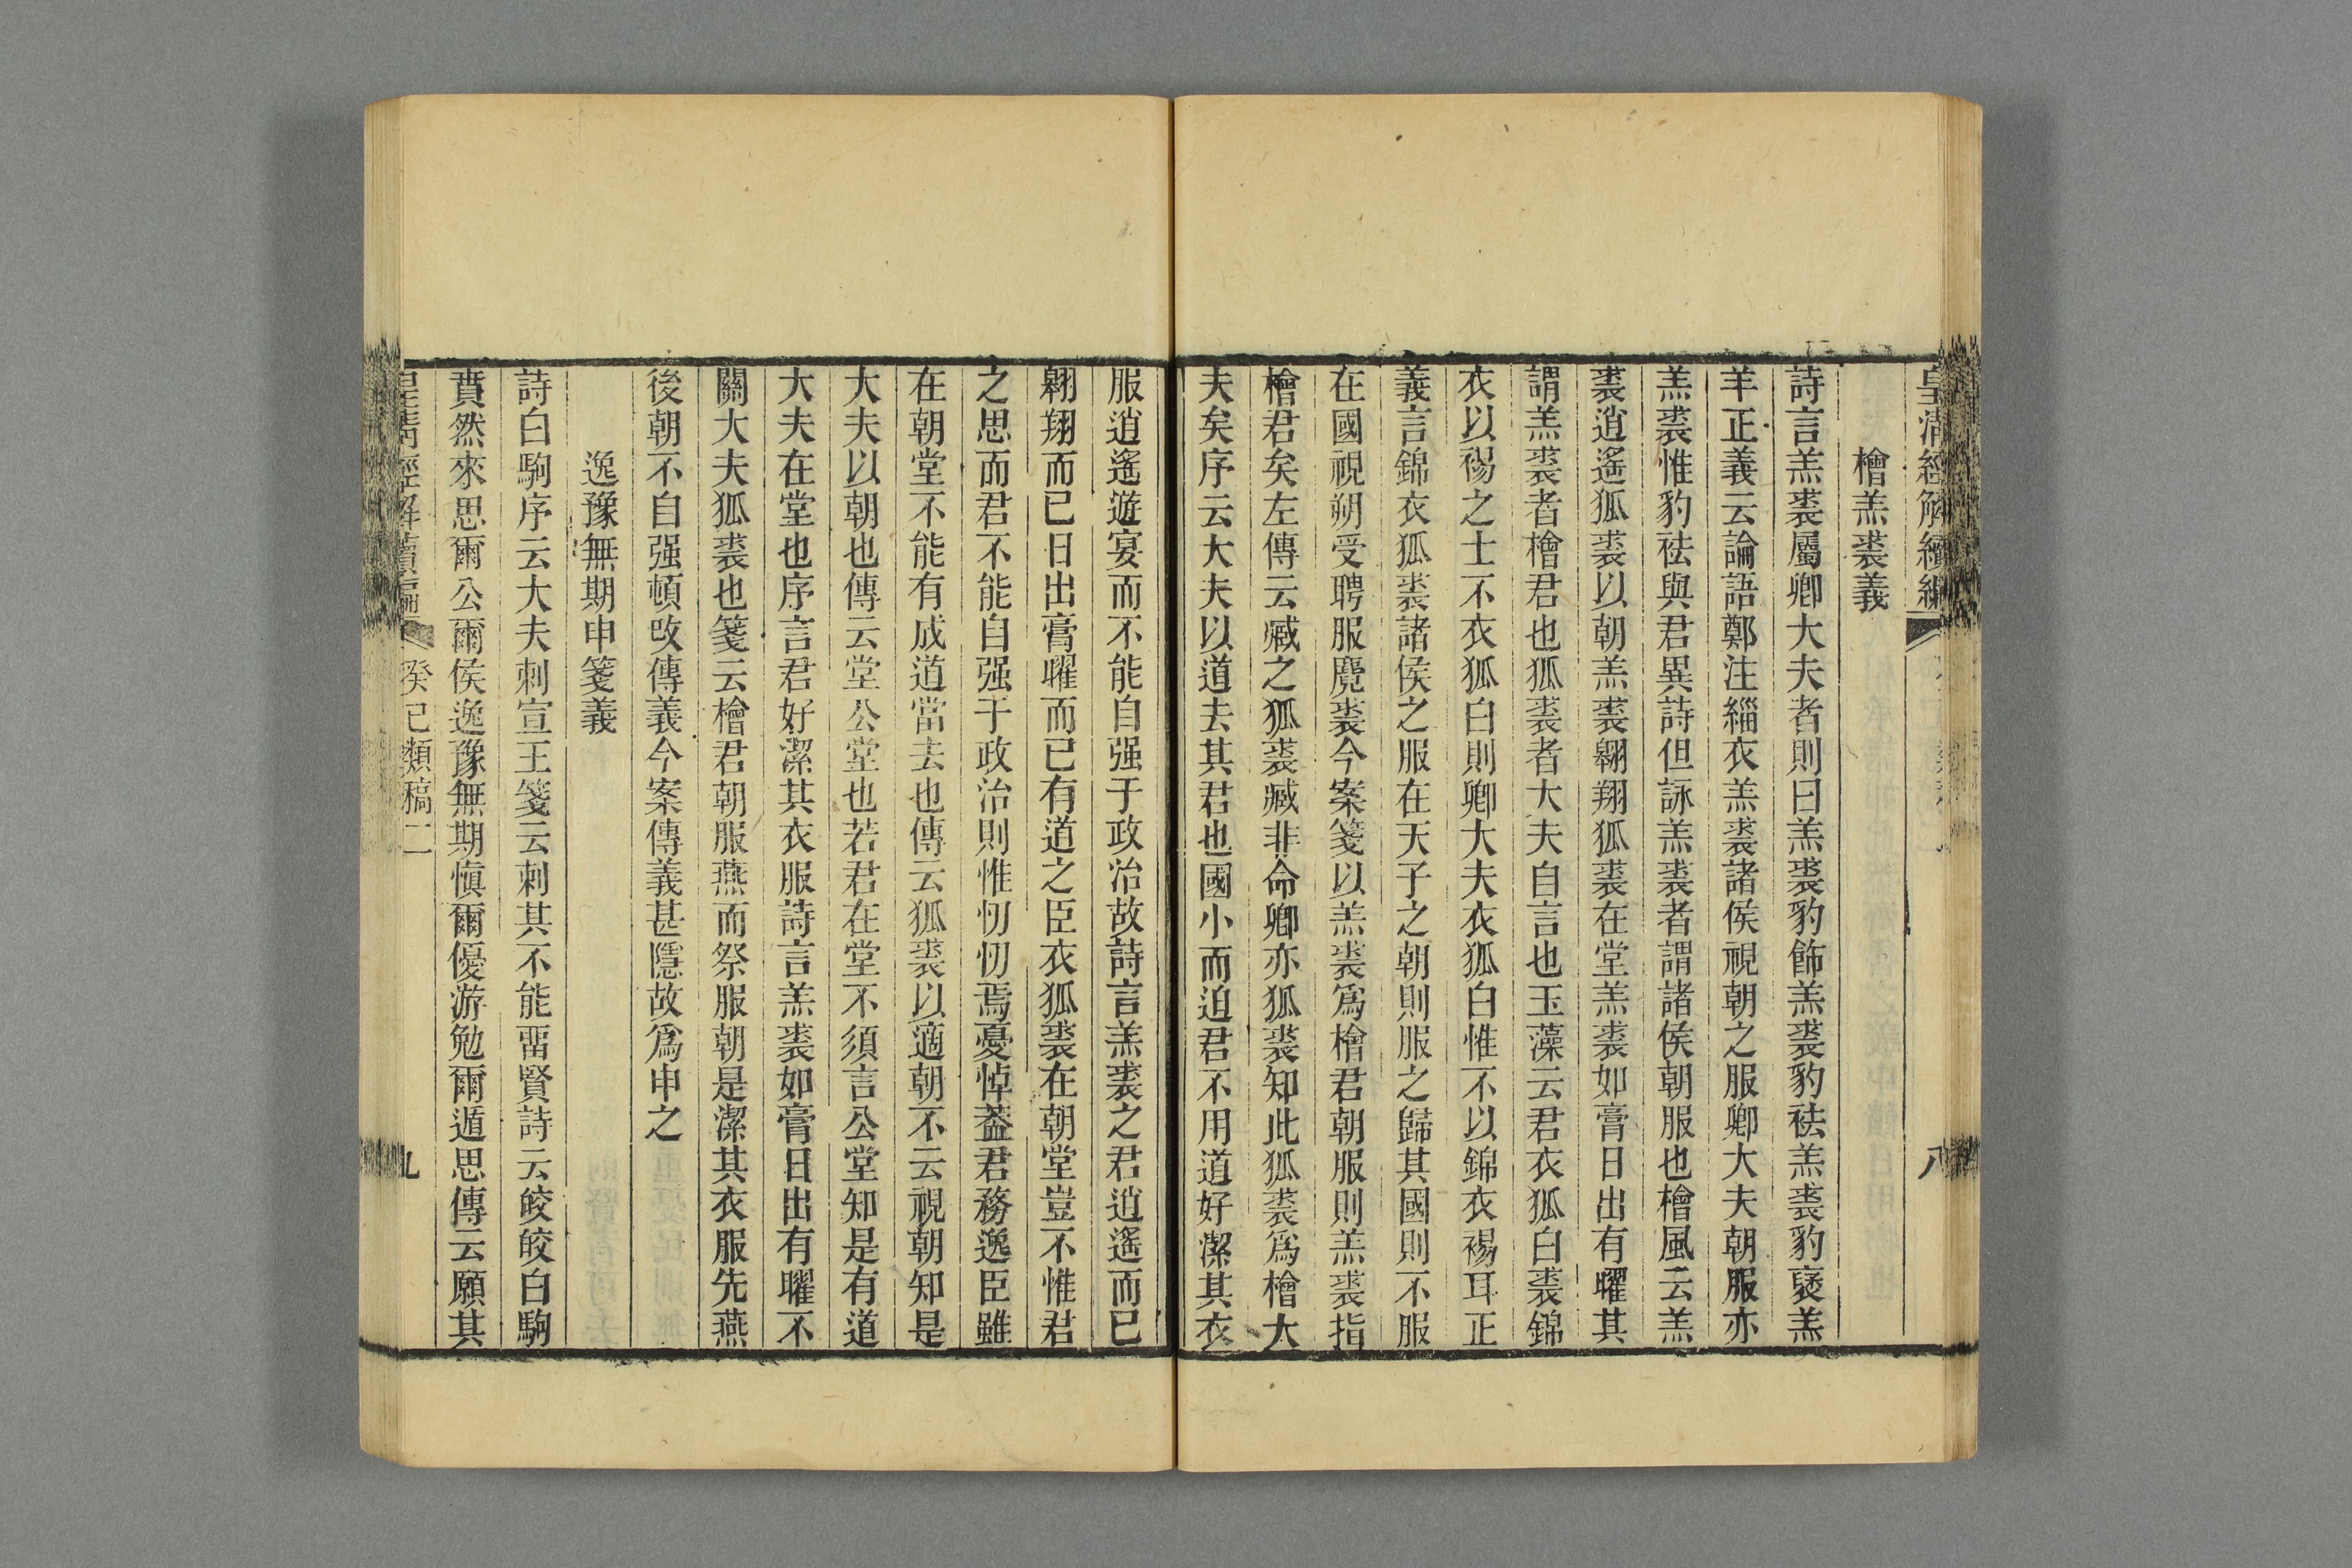 皇清經解續編
八
檜羔裘義
詩言羔裘屬卿大夫者則曰羔裘豹飾羔裘豹袪羔裘豹褎羔
羊正義云論語鄭注緇衣羔裘諸侯視朝之服卿大夫朝服亦
羔裘惟豹袪與君異詩但詠羔裘者謂諸侯朝服也檜風云羔
裘逍遙狐裘以朝羔裘翱翔狐裘在堂羔裘如膏日出有曜其
謂羔裘者檜君也狐裘者大夫自言也玉藻云君衣狐白裘錦
衣以裼之士不衣狐白則卿大夫衣狐白惟不以錦衣裼耳正
義言錦衣狐裘諸侯之服在天子之朝則服之歸其國則不服
在國視朔受聘服麑裘今案箋以羔裘爲檜君朝服則羔裘指
檜君矣左傳云臧之狐裘臧非命卿亦狐裘知此狐裘爲檜大
夫矣序云大夫以道去其君也國小而迫君不用道好潔其衣
服逍遙遊宴而不能自强于政治故詩言羔裘之君逍遙而已
翱翔而已日出膏曜而已有道之臣衣狐裘在朝堂豈不惟君
之思而君不能自强于政治則惟忉忉焉憂悼葢君務逸臣雖
在朝堂不能有成道當去也傳云狐裘以適朝不云視朝知是
大夫以朝也傳云堂公堂也若君在堂不須言公堂知是有道
大夫在堂也序言君好潔其衣服詩言羔裘如膏日出有曜不
關大夫狐裘也箋云檜君朝服燕而祭服朝是潔其衣服先燕
後朝不自强頓攺傳義今案傳義甚隱故爲申之
逸豫無期申箋義
詩白駒序云大夫刺宣王箋云刺其不能畱賢詩云皎皎白駒
賁然來思爾公爾侯逸豫無期愼爾優游勉爾遁思傳云願其
皇清經解續編
癸巳類稿二
九